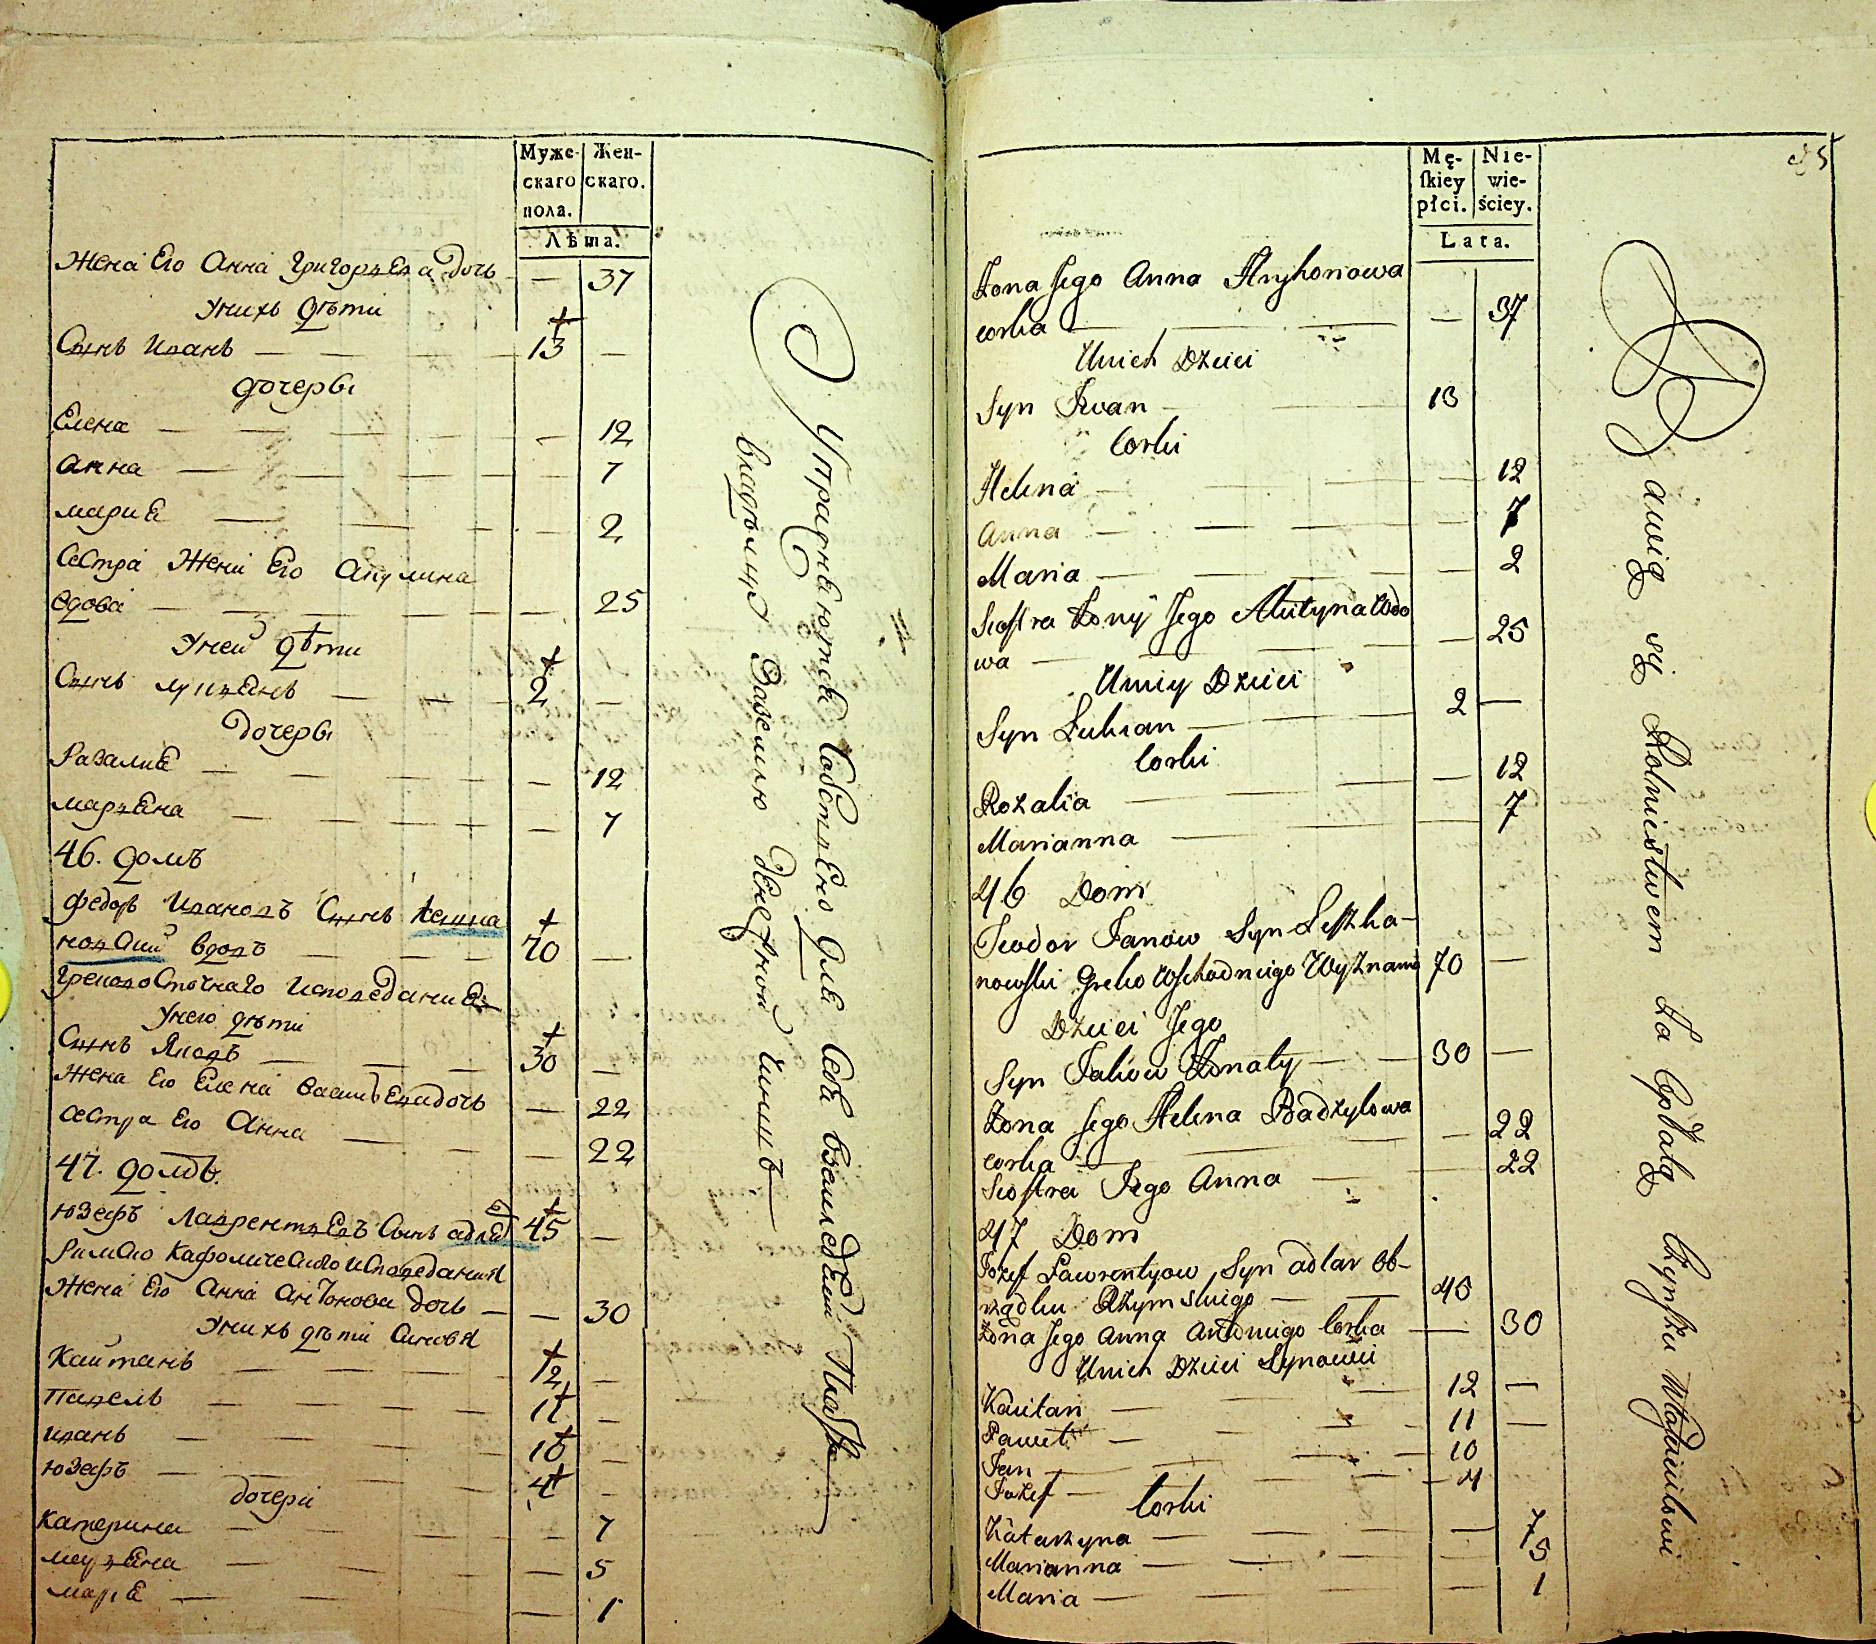 Муже-
скаго
пола.
Жен-
скаго.
Лѣта.
Жена Его Анна Григорьева дочь — 37
Унихъ дѣти
Сынъ Иванъ — 13 —
дочеры
Елена — 12
анна — 7
мариѣ — 2
Сестра Жени Его Акулина
вдова — 25
Уней дѣти
Сынъ лукѣанъ — 2 —
дочеры
Разалиѣ — 12
марѣѣна — 7
46. домъ
федоръ Ивановъ Сынъ
вдовъ — 70 —
Грековосточнаго исповеданиѣ
Унего дѣти
Сынъ Яковъ — 30 —
Жена Его Елена дочь — 22
Сестра Его Анна — 22
47. домъ
юзефъ Лаврентьевъ Сынъ адлѣр 45 —
Римско Кафолического исповеданиѣ
Жена Его Анна Антонова дочь — 30
Унихъ дѣти Сыновѣ
Каитанъ — 12 —
Павелъ — 11 —
иванъ — 10 —
юзефъ — 4 —
дочери
Катерина — 7
марѣѣна — 5
марѣ — 1
Упражнѣютси Собствено для Себѣ
владѣльцу Заземлю денежной чиншъ
Mę-
ſkiey
płci.
Nie-
wie-
ściey.
Lata.
Zona Jego Anna Hryhorowa
corka — 37
Unich Dzieci
Syn Iwan — 13
Corki
Helena — 12
Anna — 7
Maria — 2
Siostra Zony Jego Akulyna Wdo
wa — 25
Uniey Dzieci
Syn Lukian — 2 —
Corki
Rozalia — 12
Marianna — 7
46 Dom
Teodor Janow Syn Leszka-
nowski Greko Wschodniego Wyznania 70 —
Dzieci Jego
Syn Jakow Zonaty — 30 —
Zona Jego Helena Bazylowa
corka — 22
Siostra Jego Anna — 22
47 Dom
Jozef Lawrentyow Syn adlar Ob-
rządku Rzymskiego — 45
Zona Jego Anna Antoniego Corka — 30
Unich Dzieci Synowie
Kaietan — 12 —
Paweł — 11 —
Jan — 10
Jozef — 4
Corki
Katarzyna — 7
Marianna — 5
Maria — 1
Bawią się Rolnictwem Za Opłatą Czynszu Właścicielowi